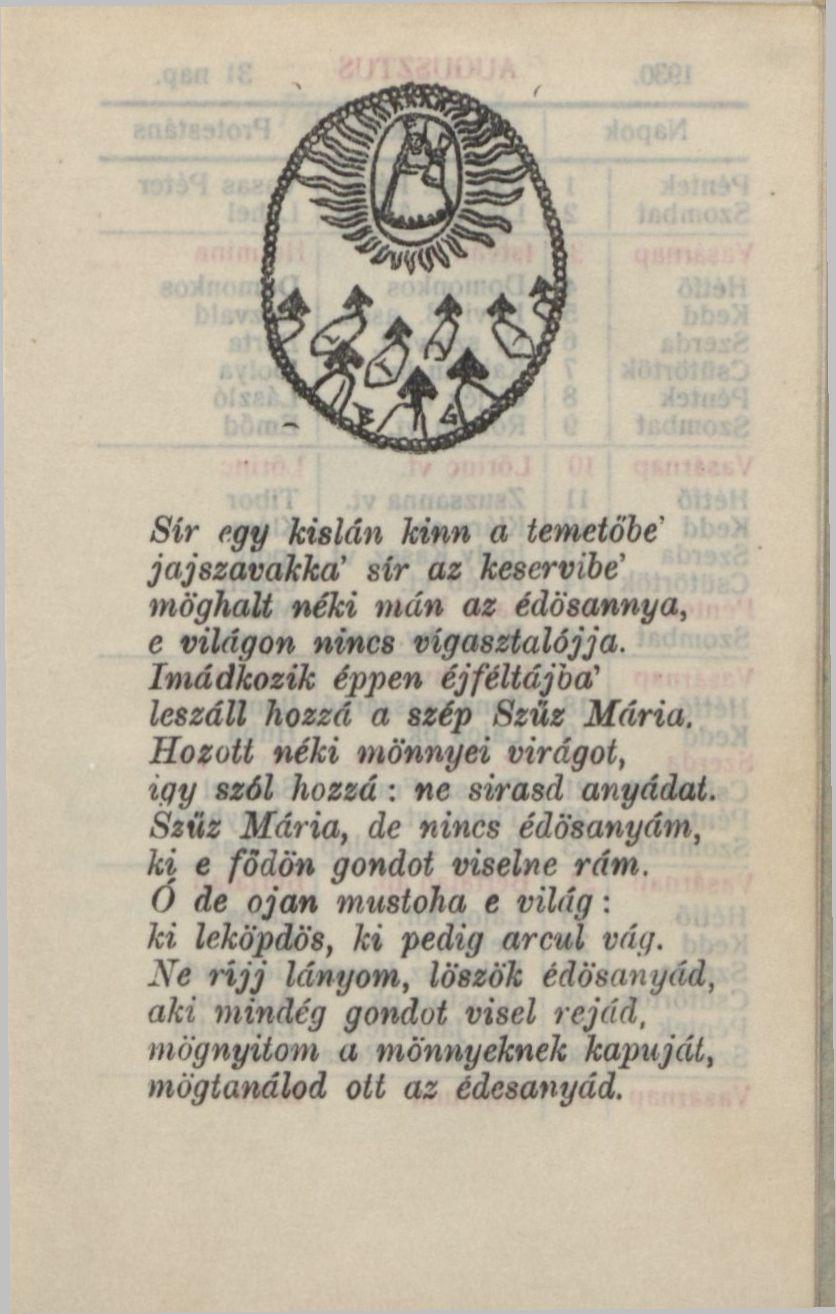 B G
Sír egy kislán kinn a temetőbe'
jajszavakka' sír az keservibe'
möghalt néki mán az édösannya,
e világon nincs vígasztalójja.
Imádkozik éppen éjféltájba'
leszáll hozzá a szép Szűz Mária.
Hozott néki mönnyei virágot,
igy szól hozzá : ne sirasd anyádat.
Szűz Mária, de nincs édösanyám,
ki e födön gondot viselne rám.
Ó de ojan mustoha e világ :
ki leköpdös, ki pedig arcul vág.
Ne ríjj lányom, löszök édösanyád,
aki mindég gondot visel rejád,
mögnyitom a mönnyeknek kapuját,
mögtanálod ott az édesanyád.